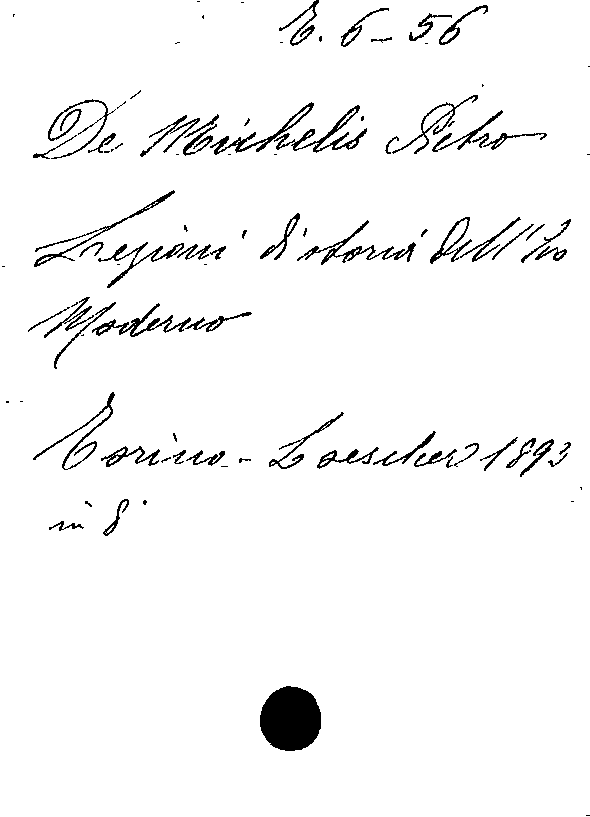 E. 6 - 56
De Michelis Pietro
Lezioni di storia dell'Evo
Moderno
Torino - Loescher 1893
in 8°